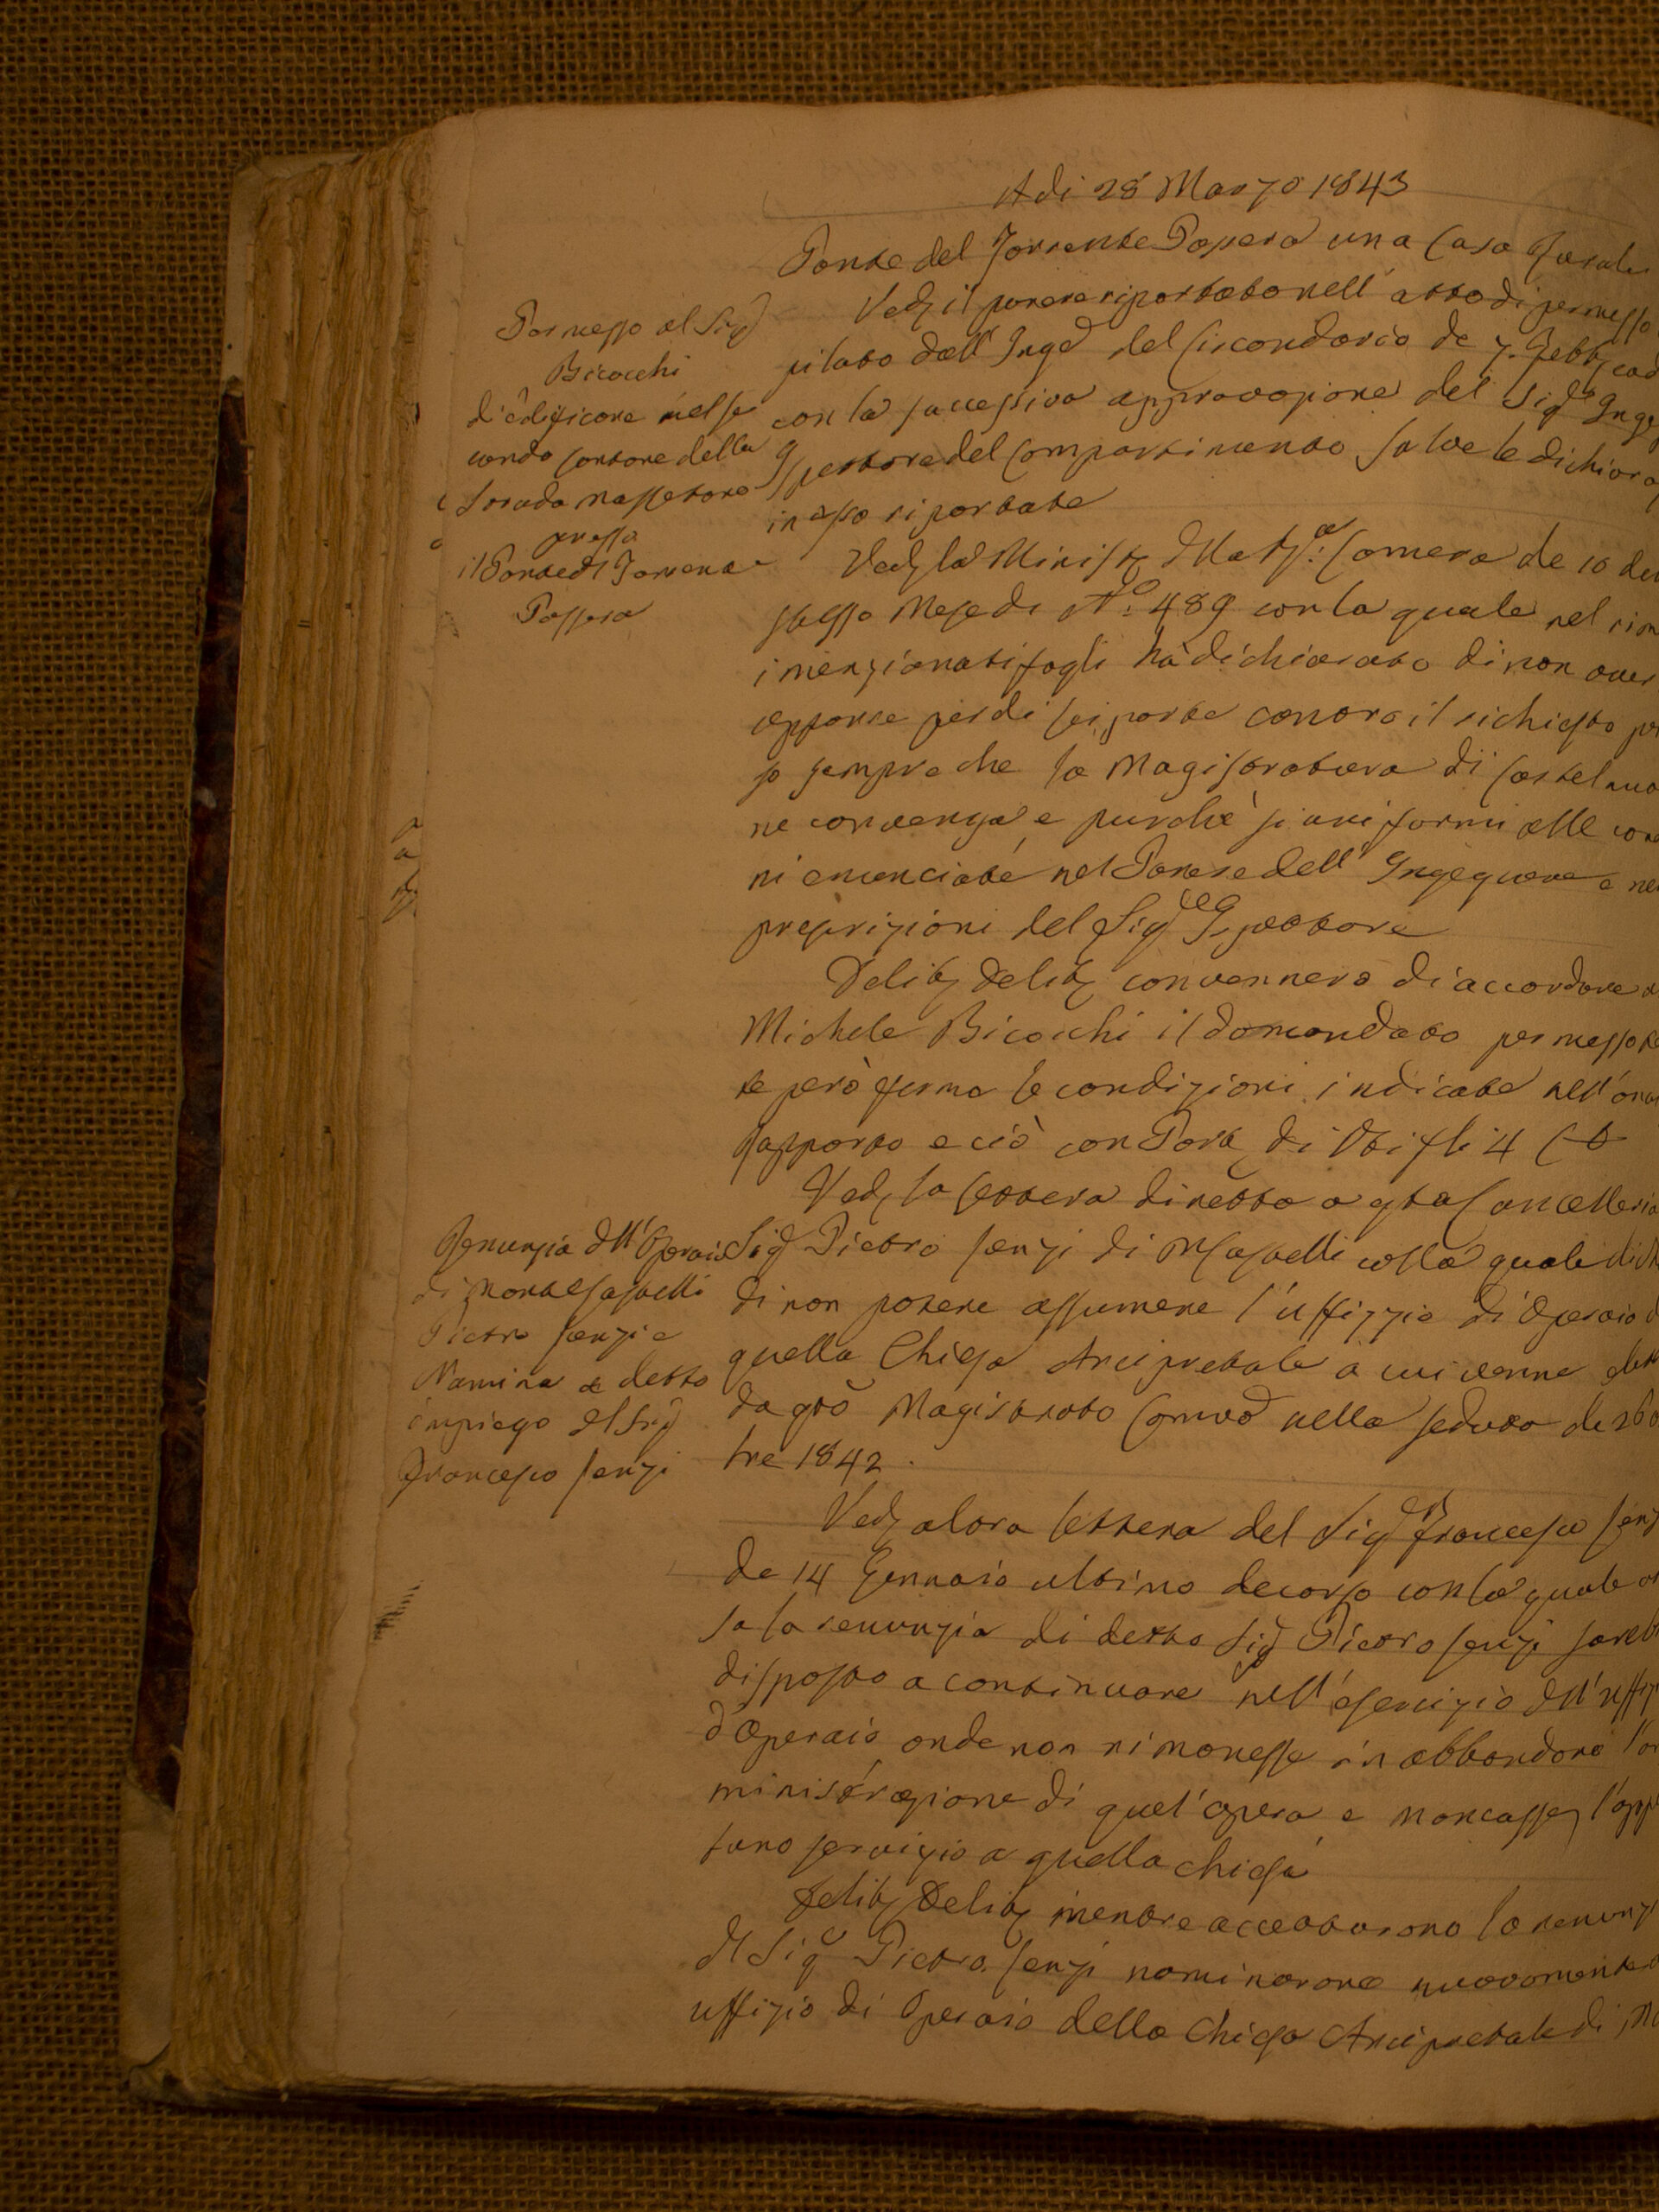 Adi 28 Marzo 1843
Ponte del Torrente Passera una Casa Rurale
Ved. il parere riportato nell' atto di permesso
Permesso al Sig.
Bicocchi
d'edificare nel se
condo tortore della
strada Massetana
presso
il Ponte del Torrente
Passera
pilato dall' Inge del Circondario de 7. Febb. cad
con la successiva approvazione del Sig. Inge
Ispettore del Compartimento salve le dichiara
in esso riportate
Ved. la Minist. della Camera de 10 del
stesso Mese di N.º 489 con la quale nel rim
i menzionati fogli hà dichiarato di non aver
opporre per di lei parte contro il richiesto per
so sempre che la Magistratura di Castelnuo
ne convenga e purchè si uniformi alle con
ni enunciate nel Parere dell' Ingegnere e ne
prescrizioni del Sig. Ispettore
Delib. Delib. convennero di accordare a
Michele Bicocchi il domandato permesso
te però ferme le condizioni indicate nell'
rapporto e ciò con Part. di Voti fli 4 C
Ved. la lettera diretta a qta Cancelleria
Renunzia dell' Operaio
di Monte Castelli
Pietro Cenzi e
Nomina a detto
impiego del Sig.
Francesco Cenzi
Sig. Pietro Cenzi di MCastelli colla quale dich
di non potere assumere l'uffizzio di Operaio d
quella Chiesa Arcipretale a cui venne elet
da qto Magistrato Comvo nella seduta de 26
tre 1842.
Ved. altra lettera del Sig. Francesco Cenz
de 14 Gennaio ultimo decorso con la quale
sa la renunzia di detto Sig. Pietro Cenzi sareb
disposto a continuare nell'esercizio dell'uffiz
d'Operaio onde non rimanesse in abbandono l'
ministrazione di quel'opera e mancasse l'opp
tuno servizio a quella Chiesa
Delib. Delib. mentre accettarono la renunz
del Sig. Pietro Cenzi nominarono nuovamente
uffizio di Operaio della Chiesa Arcipretale di M